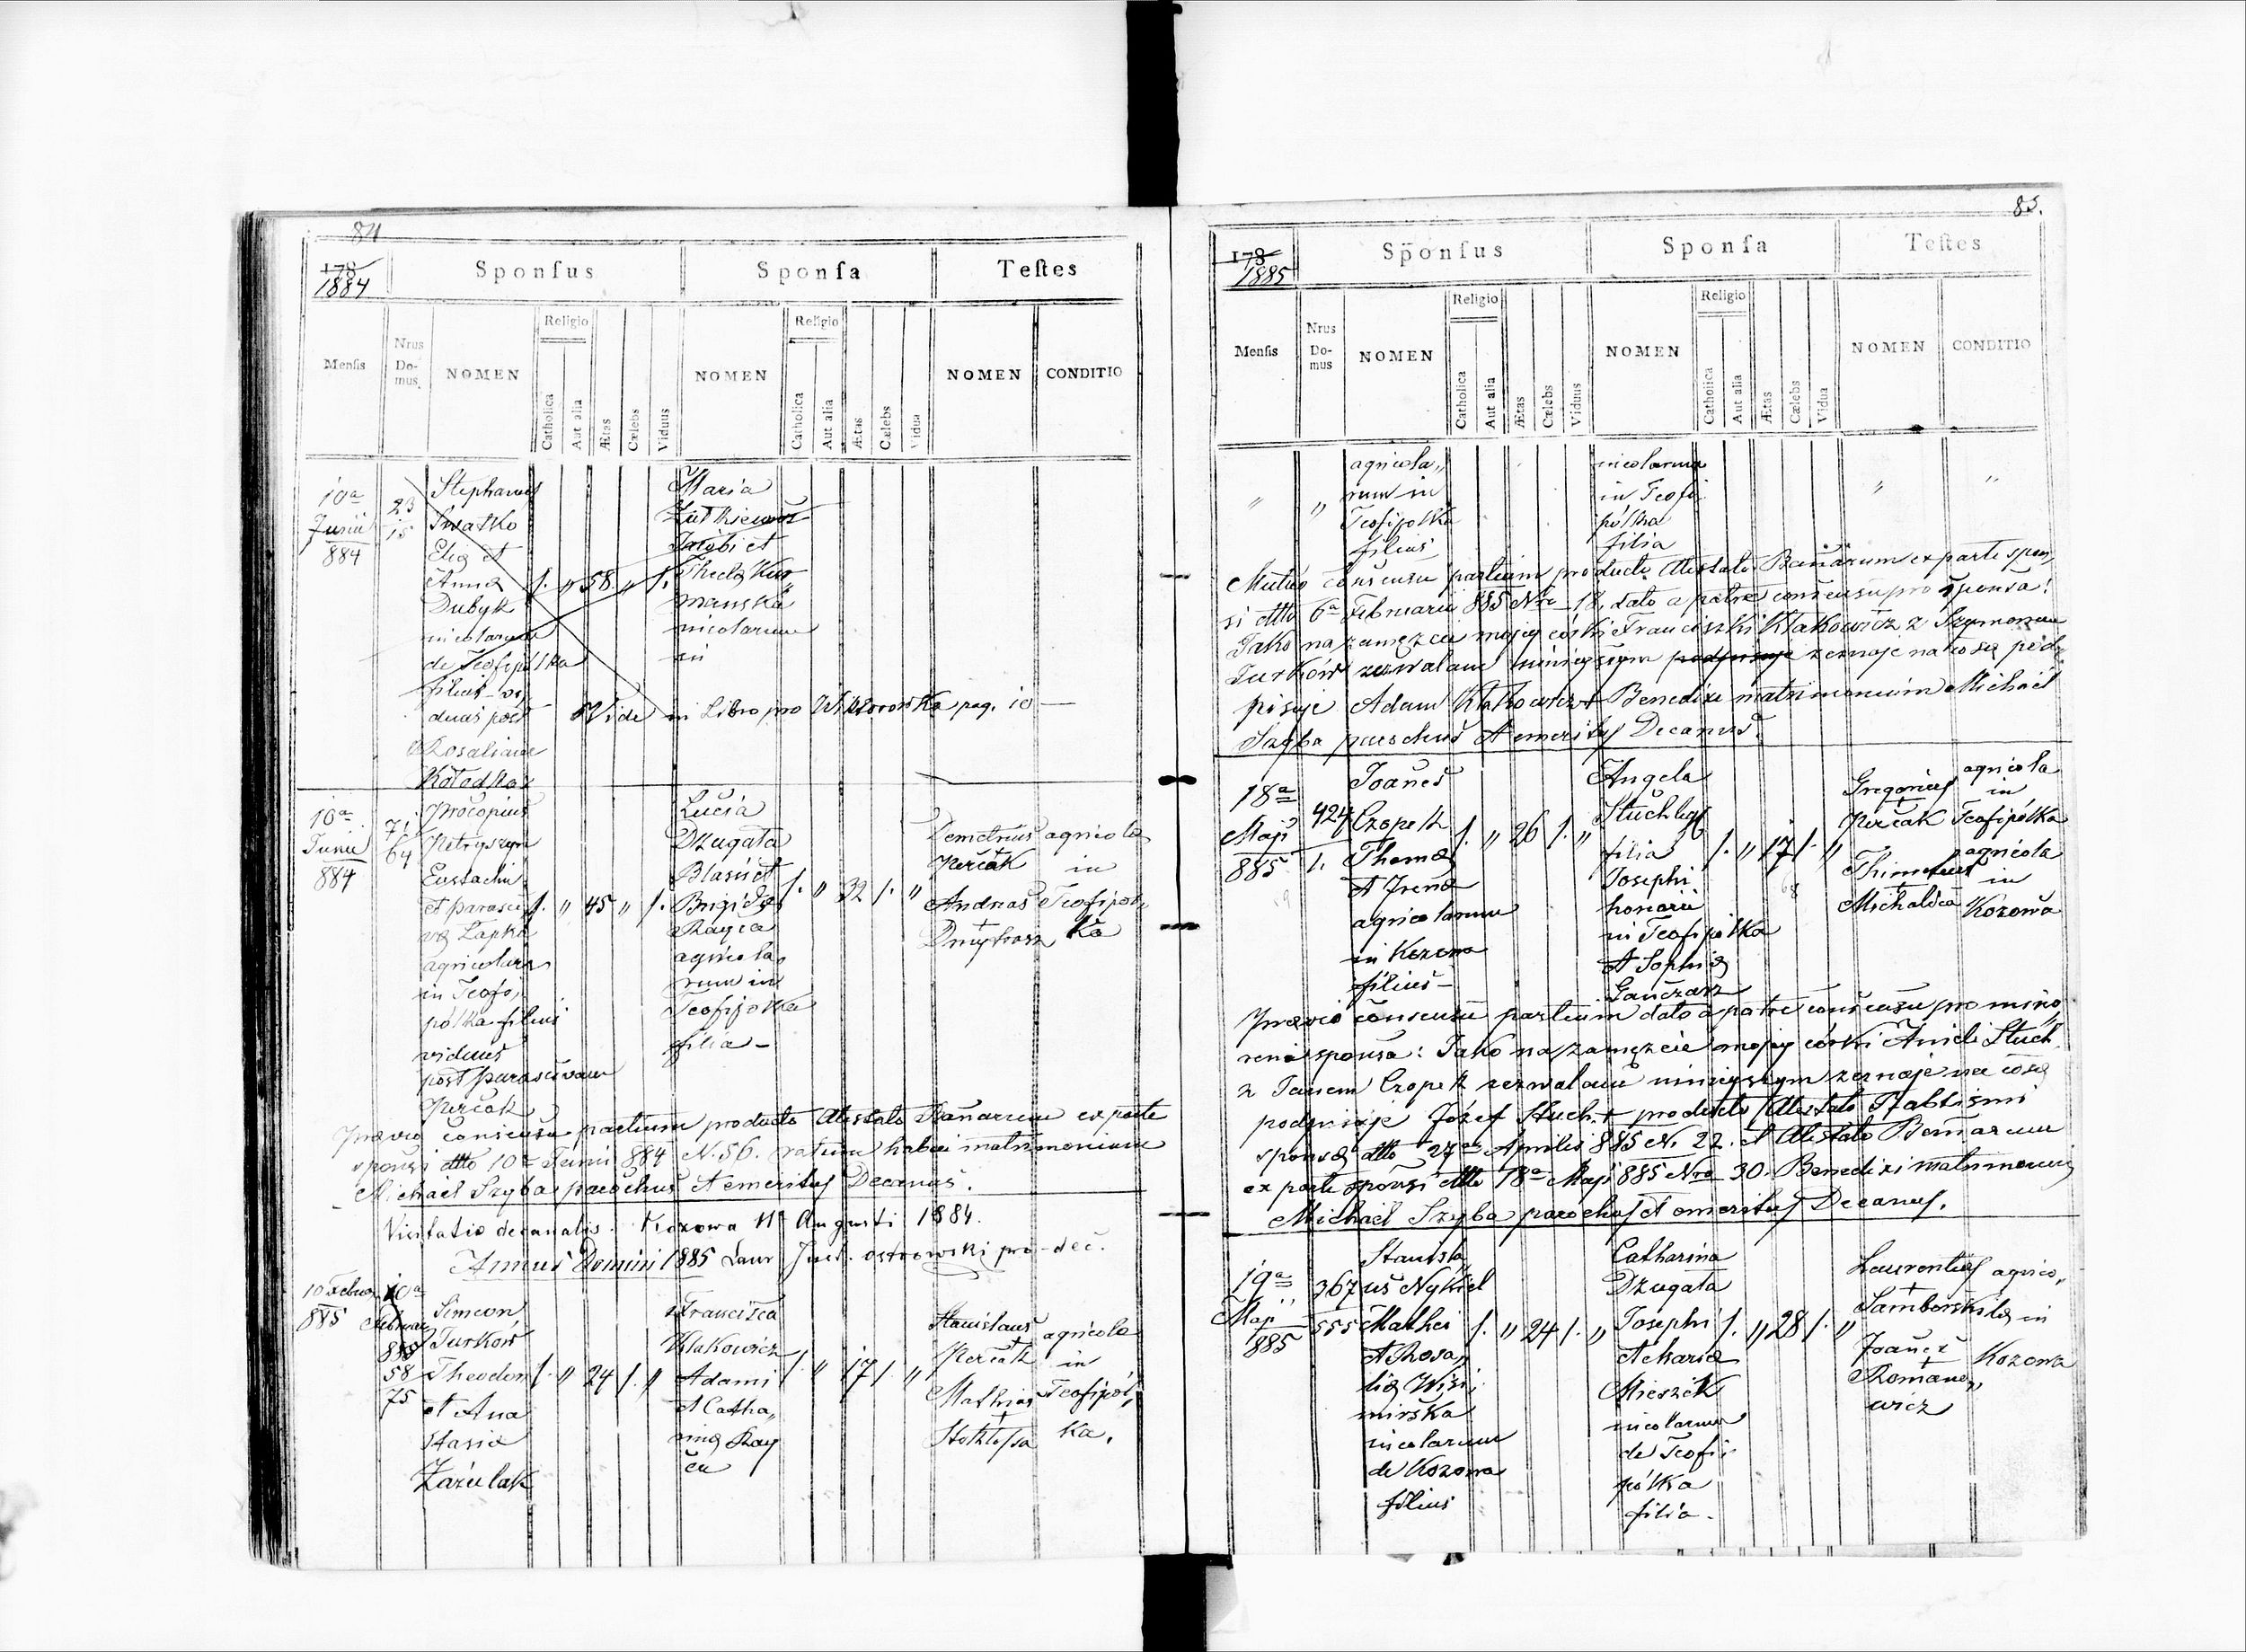 84
178
1884
Sponsus
Sponsa
Testes
Mensis
Nrus Domus
NOMEN
Religio
Catholica
Aut alia
Ætas
Cælebs
Viduus
NOMEN
Religio
Catholica
Aut alia
Ætas
Cælebs
Vidua
NOMEN
CONDITIO
10a
Junii
884
23
15
Stephanus
Swatko
Eliæ et
Anna
Dubyk
incolarum
de Teofipólka
filius vi,
duus post
Rosaliam
Kołodka
1. „ 58 „ 1.
Maria
Jacobi et
Thecla Kur
manska
incolarum
in
Vide in Libro pro pag. 10
10a
Junii
884
71
64
Procopius
Petryszyn
Eustachii
et Parasce
væ Łapka
agricolarum
in Teofi,
pólka filius
viduus
post Parascevam
Perčak
1. „ 45 „ 1.
Lucia
Dzugała
Blasii et
Brigidæ
Rayca
agricola,
rum in
Teofipolka
filia
1. „ 32 1. „
Demetrius
Perčak
Andreas
+
agricola
in
Teofipol,
ka
Prævio consensu partium producto Atestato Banarum ex parte
sponsi dtto 10a Junii 884 N. 56. ratum habui matrimonium
Michael Szyba parochus et emeritus Decanus.
Visitatio decanalis. Kozowa 11 Augusti 1884.
Annus Domini 1885 Laur Ostrowski pro-dec.
10 Febru
885
58
75
Simeon
Turków
Theodori
et Ana
stasia
Zazulak
1. „ 24 1. „
Francisca
Kłakowicz
Adami
et Catha,
rinæ Ray
ca
1. „ 17 1. „
Stanislaus
Perčak
Mathias
+
agricola
in
Teofipól,
ka.
85.
178
1885
Sponsus
Sponsa
Testes
Mensis
Nrus Domus
NOMEN
Religio
Catholica
Aut alia
Ætas
Cælebs
Viduus
NOMEN
Religio
Catholica
Aut alia
Ætas
Cælebs
Vidua
NOMEN
CONDITIO
„
„
agricola,,
rum in
Teofipolka
filius
incolarum
in Teofi
pólka
filia
„
„
Mutuo consensu partium producto Atestato Banarum ex parte spon,
si dtto 6a Februarii 885 Nro 18, dato a patre consensu pro sponsa:
Jako na zamęzcie mojej córki Franciszki Kłakowicz z Szymonem
Turków zezwalam niniejszym podpisuje zeznaje na co się pod,
pisuje Adam Kłakowicz + Benedixi matrimonium Michael
Szyba parochus et emeritus Decanus.
18a
Maji
885
424
1.
Joanes
Czopek
Thomæ
et Irena
agricolarum
in Kozowa
filius
1. „ 26 1. „
Angela
filia
Josephi
in Teofipólka
et Sophiæ
Ganczarz
1. „ 17 1. „
Gregorius
+
Perčak
+
agricola
in
Teofipólka
agricola
in
Kozowa
Prævio consensu partium dato a patre consensu pro mino,
reni sponsa: Jako na zamęzcie mojej córki Anieli Stuch
z Janem Czopek zezwalam niniejszym zeznaje na co się
podpisuje Józef Stuch + producto Atestato Babtismi
sponsæ dtto 27a Aprilis 885 N. 22. et Atestato Banarum
ex parte sponsi dtto 18a Maji 885 Nro 30. Benedixi matrimonium
Michael Szyba parochus et emeritus Decanus.
19a
Maji
885
367
555
Stanisla,
us Nykiel
Mathei
et Rosa,
lia Wiśni
mirska
incolarum
de Kozowa
filius
1. „ 24 1. „
Catharina
Dzugała
Josephi
et Maria
Mieszck
incolarum
de Teofi
pólka
filia.
1. „ 28 1. „
Laurentius
+
Joanes
+
Romano,
wicz
agrico,
læ in
Kozowa